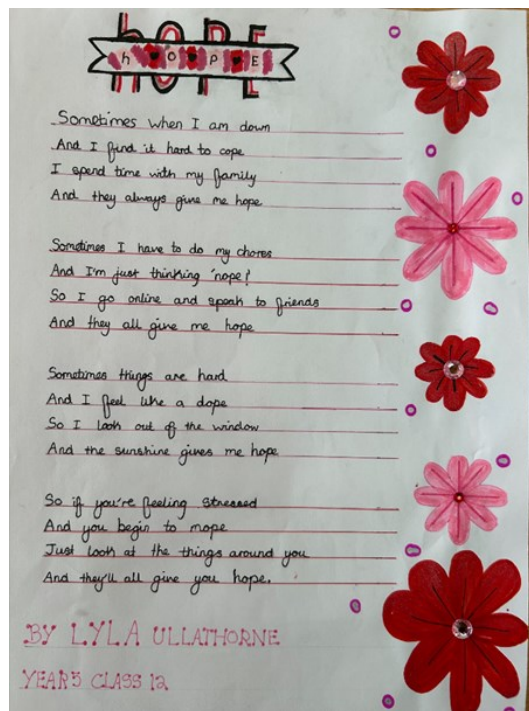 HOPE
hOPE
Sometimes when I am down
And I find it hard to cope
I spend time with my family
And they always give me hope
Sometimes I have to do my chores
And I'm just thinking 'nope!'
So I go online and speak to friends
And they all give me hope
Sometimes things are hard
And I feel like a dope
So I look out of the window
And the sunshine gives me hope
So if you're feeling stressed
And you begin to mope
Just look at the things around you
And they'll all give you hope.
BY LYLA ULLATHORNE
YEAR 5 CLASS 12